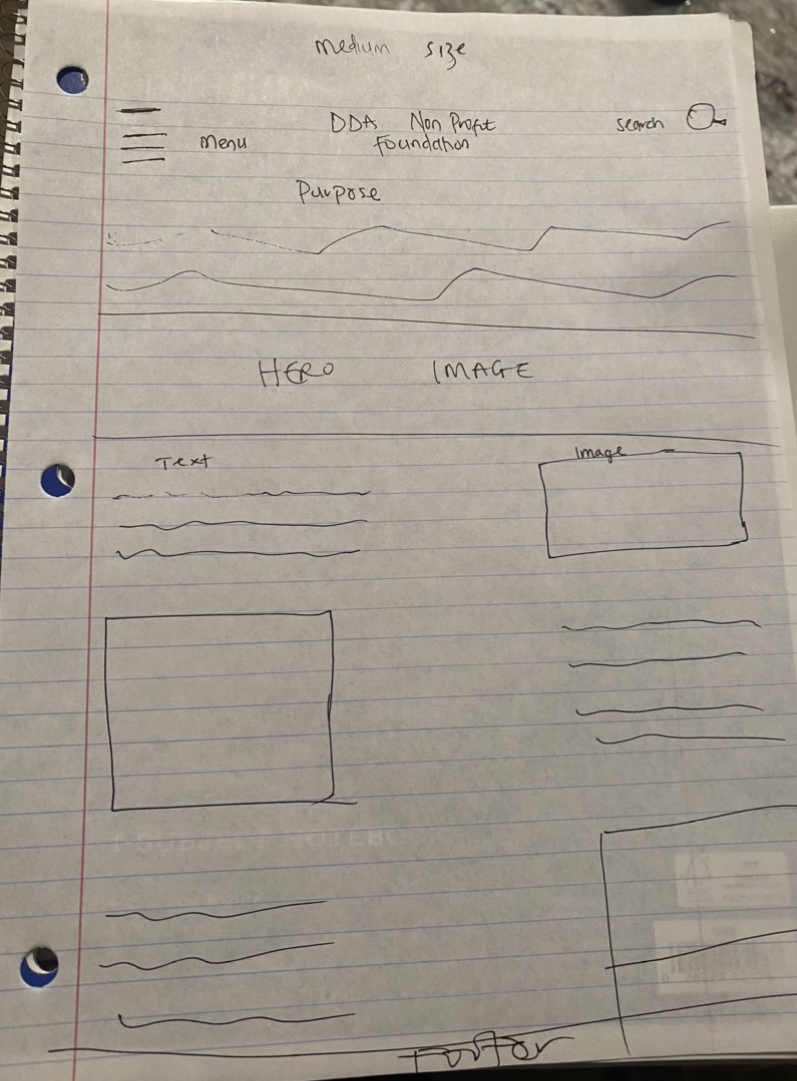 medium size
Menu
DDA Non Profit
Foundation
search
Purpose
HERO IMAGE
Text
Image
Footer